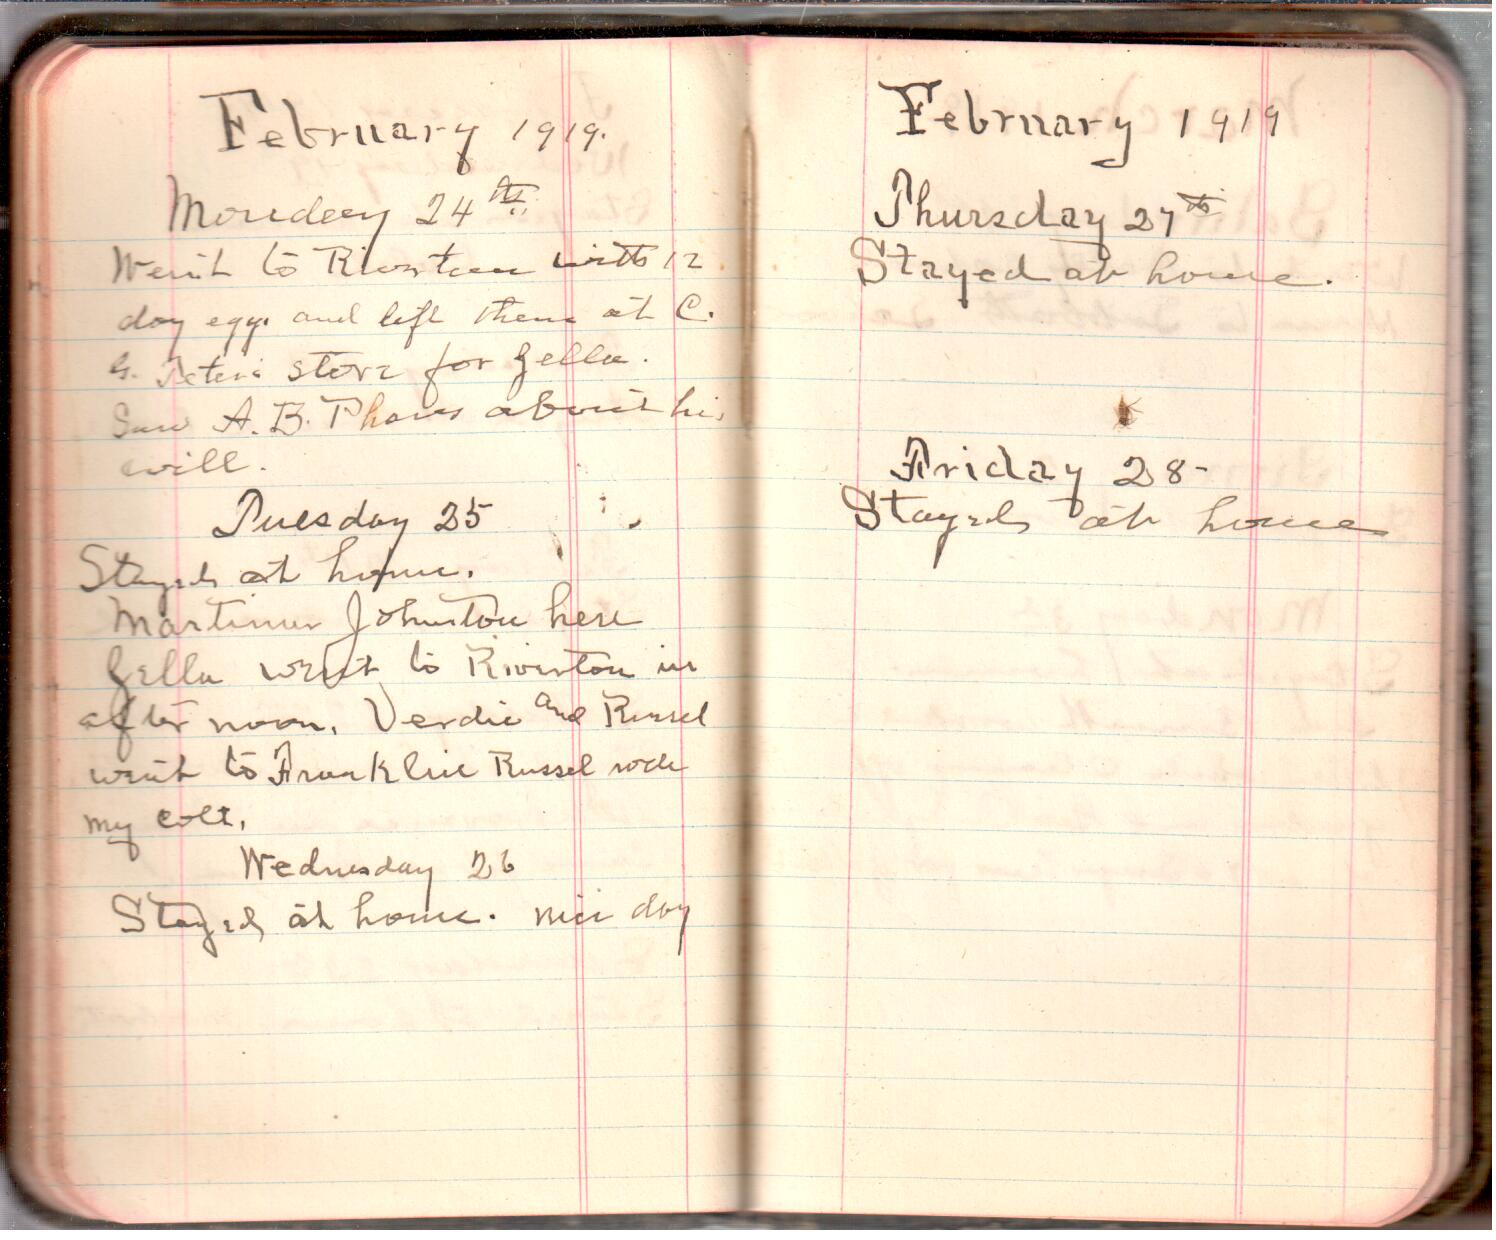 February 1919.
Monday 24th
Went to Riverton with 12
doz eggs and left them at C.
G. store for Zella.
Saw A. B. Phares about his
will.
Tuesday 25
Stayed at home.
Mortimer Johnston here
Zella went to Riverton in
after noon. Verdie and Russel
went to Franklin Russel rode
my colt.
Wednesday 26
Stayed at home. nice day
February 1919
Thursday 27th
Stayed at home.
Friday 28-
Stayed at home